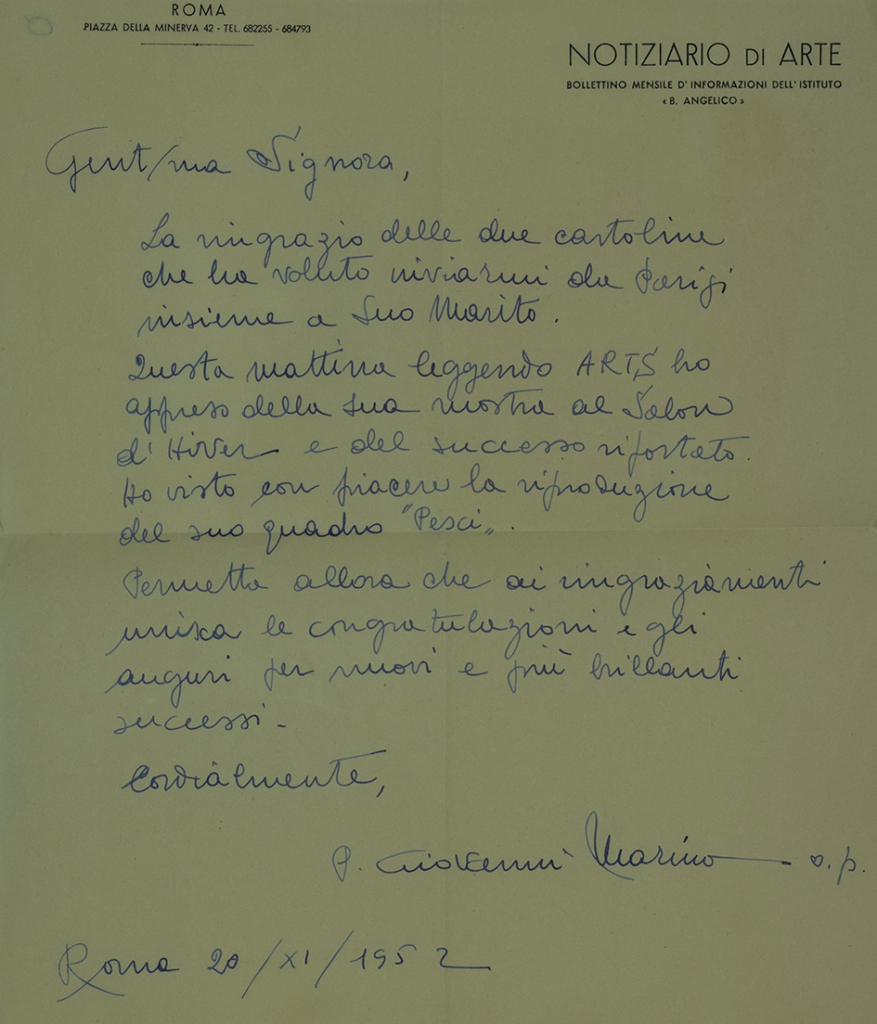 ROMA
PIAZZA DELLA MINERVA 42 - TEL. 682255 - 684793
NOTIZIARIO DI ARTE
BOLLETTINO MENSILE D'INFORMAZIONI DELL'ISTITUTO
« B. ANGELICO »
Gent/ma Signora,
La ringrazio delle due cartoline
che ha voluto inviarmi da Parigi
insieme a Suo Marito.
Questa mattina leggendo ARTS ho
appreso della sua mostra al Salon
d'Hiver e del successo riportato.
Ho visto con piacere la riproduzione
del suo quadro "Pesci".
Permetta allora che ai ringraziamenti
unisca le congratulazioni e gli
auguri per nuovi e più brillanti
successi -
Cordialmente,
P. Giovanni Marino - o.p.
Roma 20/XI/1952